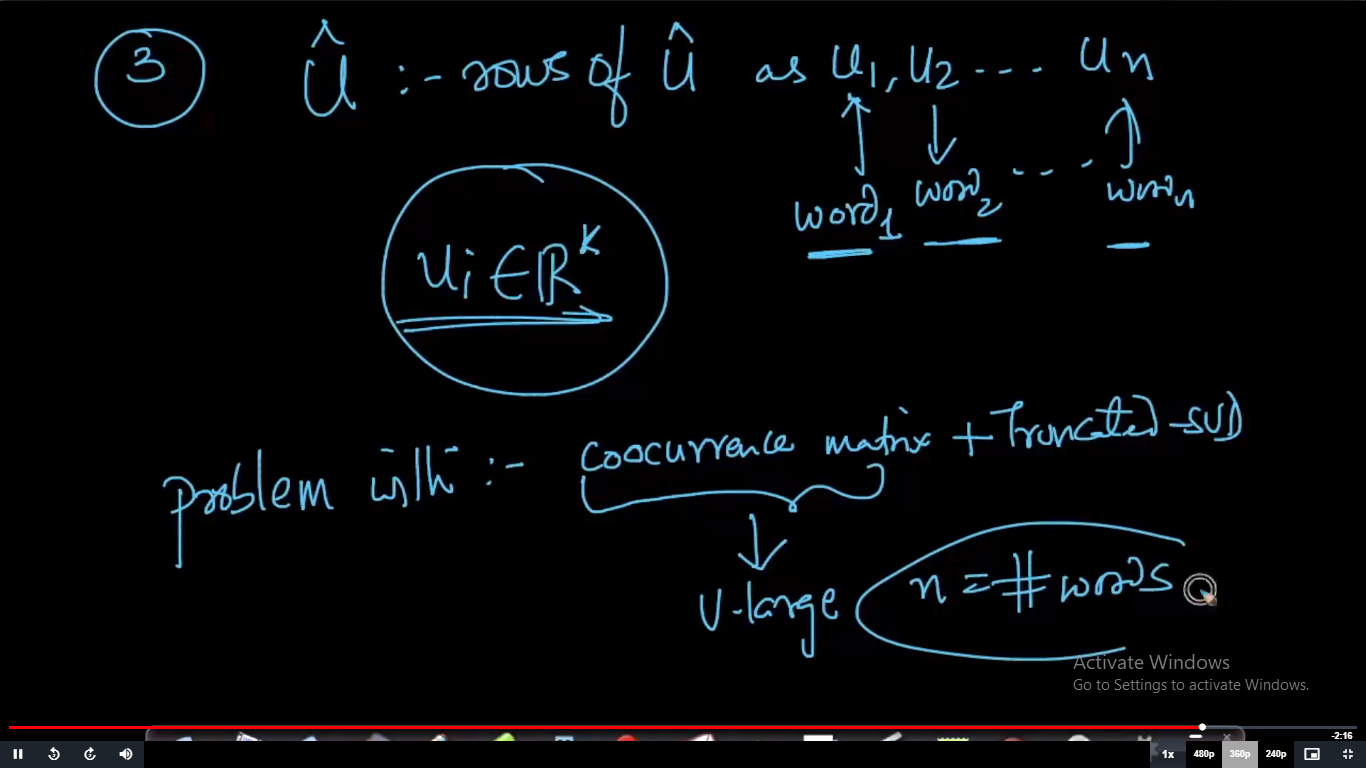 3 Û :- rows of Û as u1, u2 --- un
word1 word2 --- wordn
ui ∈ ℝᴷ
problem with :- coocurrence matrix + Truncated-SVD
V-large n = # words
Activate Windows
Go to Settings to activate Windows.
-2:16
1x 480p 360p 240p